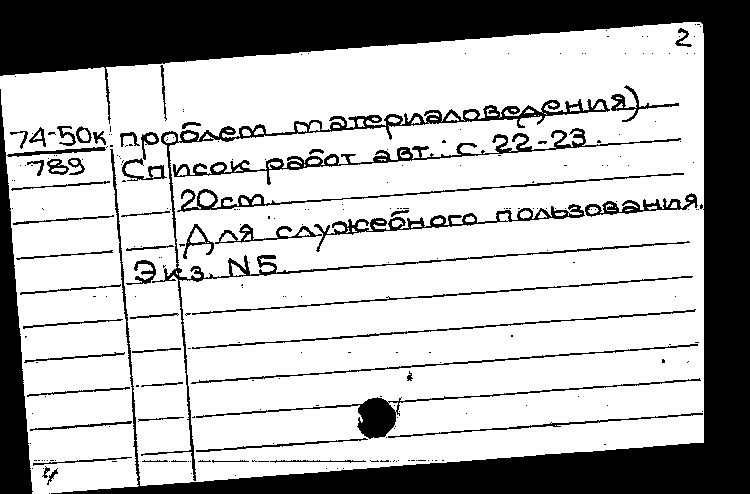 2
74-50к проблем материаловедения).
789 Список работ авт.: с. 22-23.
20см.
Для служебного пользования.
Экз. N5.